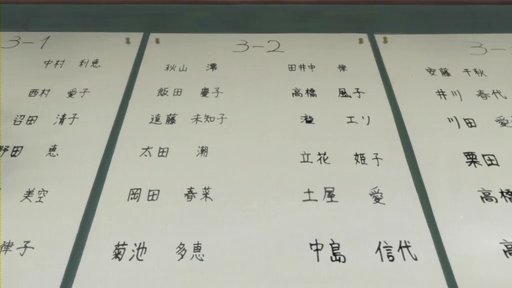 3-1
中村 利恵
西村 愛子
沼田 清子
野田 恵
美空
律子
3-2
秋山 澪
飯田 慶子
遠藤 未知子
太田 潮
岡田 春菜
菊池 多恵
田井中 律
高橋 風子
瀧 エリ
立花 姫子
土屋 愛
中島 信代
3-
安藤 千秋
井川 春代
川田 愛
栗田
高橋